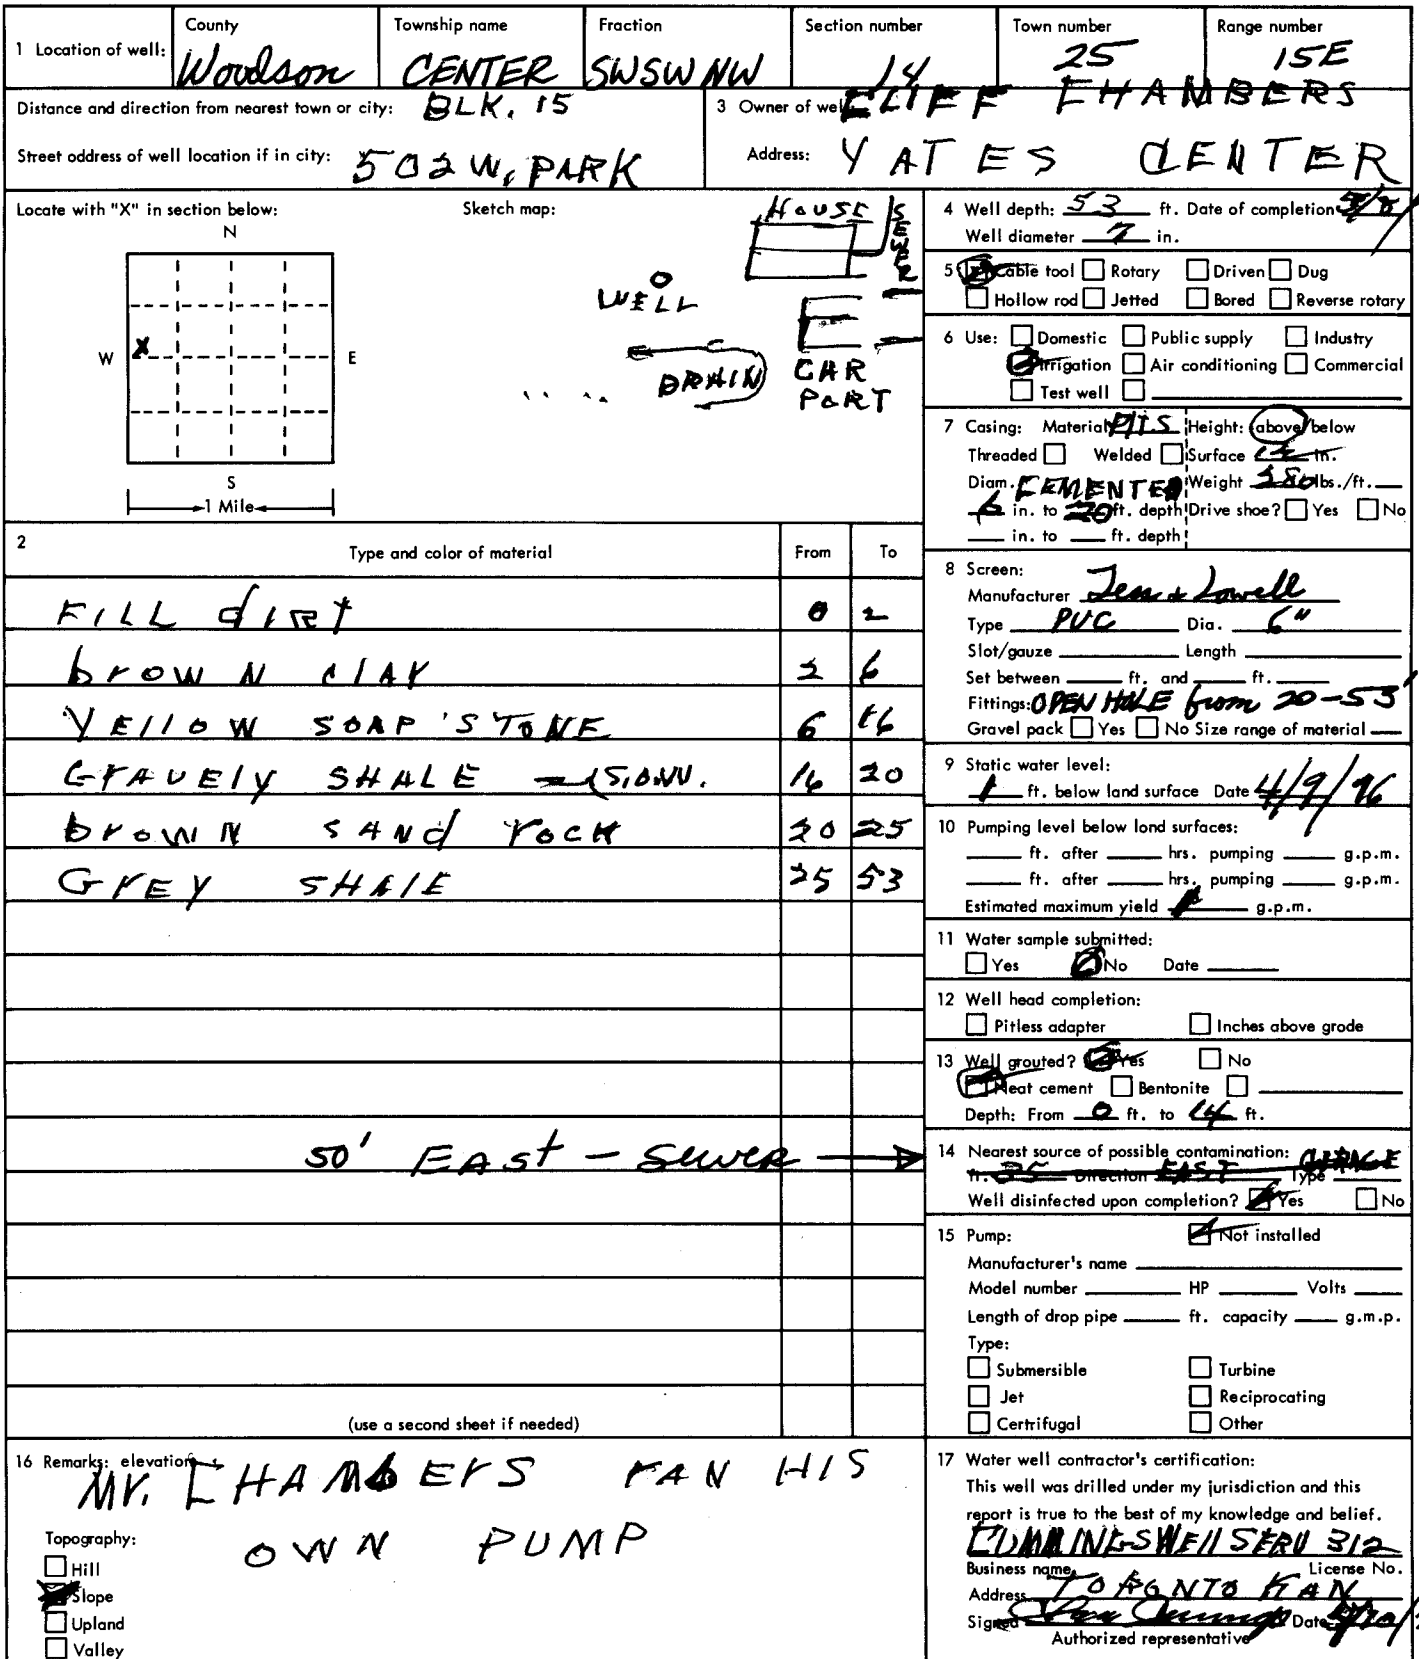 1 Location of well: County Woodson Township name CENTER Fraction SWSWNW Section number 14 Town number 25 Range number 15E
Distance and direction from nearest town or city: BLK. 15
Street address of well location if in city: 502 W. PARK
3 Owner of well: CLIFF CHAMBERS
Address: YATES CENTER
Locate with "X" in section below:
N
W X E
S
1 Mile
Sketch map:
HOUSE
SEWER
WELL
DRAIN
CAR
PORT
4 Well depth: 53 ft. Date of completion
Well diameter 7 in.
5 Cable tool Rotary Driven Dug
Hollow rod Jetted Bored Reverse rotary
6 Use: Domestic Public supply Industry
Irrigation Air conditioning Commercial
Test well
7 Casing: Material Height: above/below
Threaded Welded Surface in.
Diam. CEMENTED Weight lbs./ft.
6 in. to 20 ft. depth Drive shoe? Yes No
in. to ft. depth
2 Type and color of material From To
FILL dIRT 0 2
brOWN ClAY 2 6
YEllOW SOAP'STONE 6 16
GrAVElY SHALE 16 20
brOWN SANd rOCK 20 25
GrEY SHAlE 25 53
50' EAST - Sewer
(use a second sheet if needed)
8 Screen:
Manufacturer Jess & Lowell
Type PVC Dia. 6"
Slot/gauze Length
Set between ft. and ft.
Fittings: OPEN HOLE from 20-53'
Gravel pack Yes No Size range of material
9 Static water level:
ft. below land surface Date 4/9/76
10 Pumping level below lond surfaces:
ft. after hrs. pumping g.p.m.
ft. after hrs. pumping g.p.m.
Estimated maximum yield g.p.m.
11 Water sample submitted:
Yes No Date
12 Well head completion:
Pitless adapter Inches above grode
13 Well grouted? Yes No
Neat cement Bentonite
Depth: From 0 ft. to 14 ft.
14 Nearest source of possible contamination:
ft. 35 Direction EAST Type
Well disinfected upon completion? Yes No
15 Pump: Not installed
Manufacturer's name
Model number HP Volts
Length of drop pipe ft. capacity g.m.p.
Type:
Submersible Turbine
Jet Reciprocating
Certrifugal Other
16 Remarks: elevation
Mr. CHAMbErS rAN HIS
OWN PUMP
Topography:
Hill
Slope
Upland
Valley
17 Water well contractor's certification:
This well was drilled under my jurisdiction and this
report is true to the best of my knowledge and belief.
CUMMINGS WEll SERV 312
Business name License No.
Address TORONTO KAN
Signed Date
Authorized representative